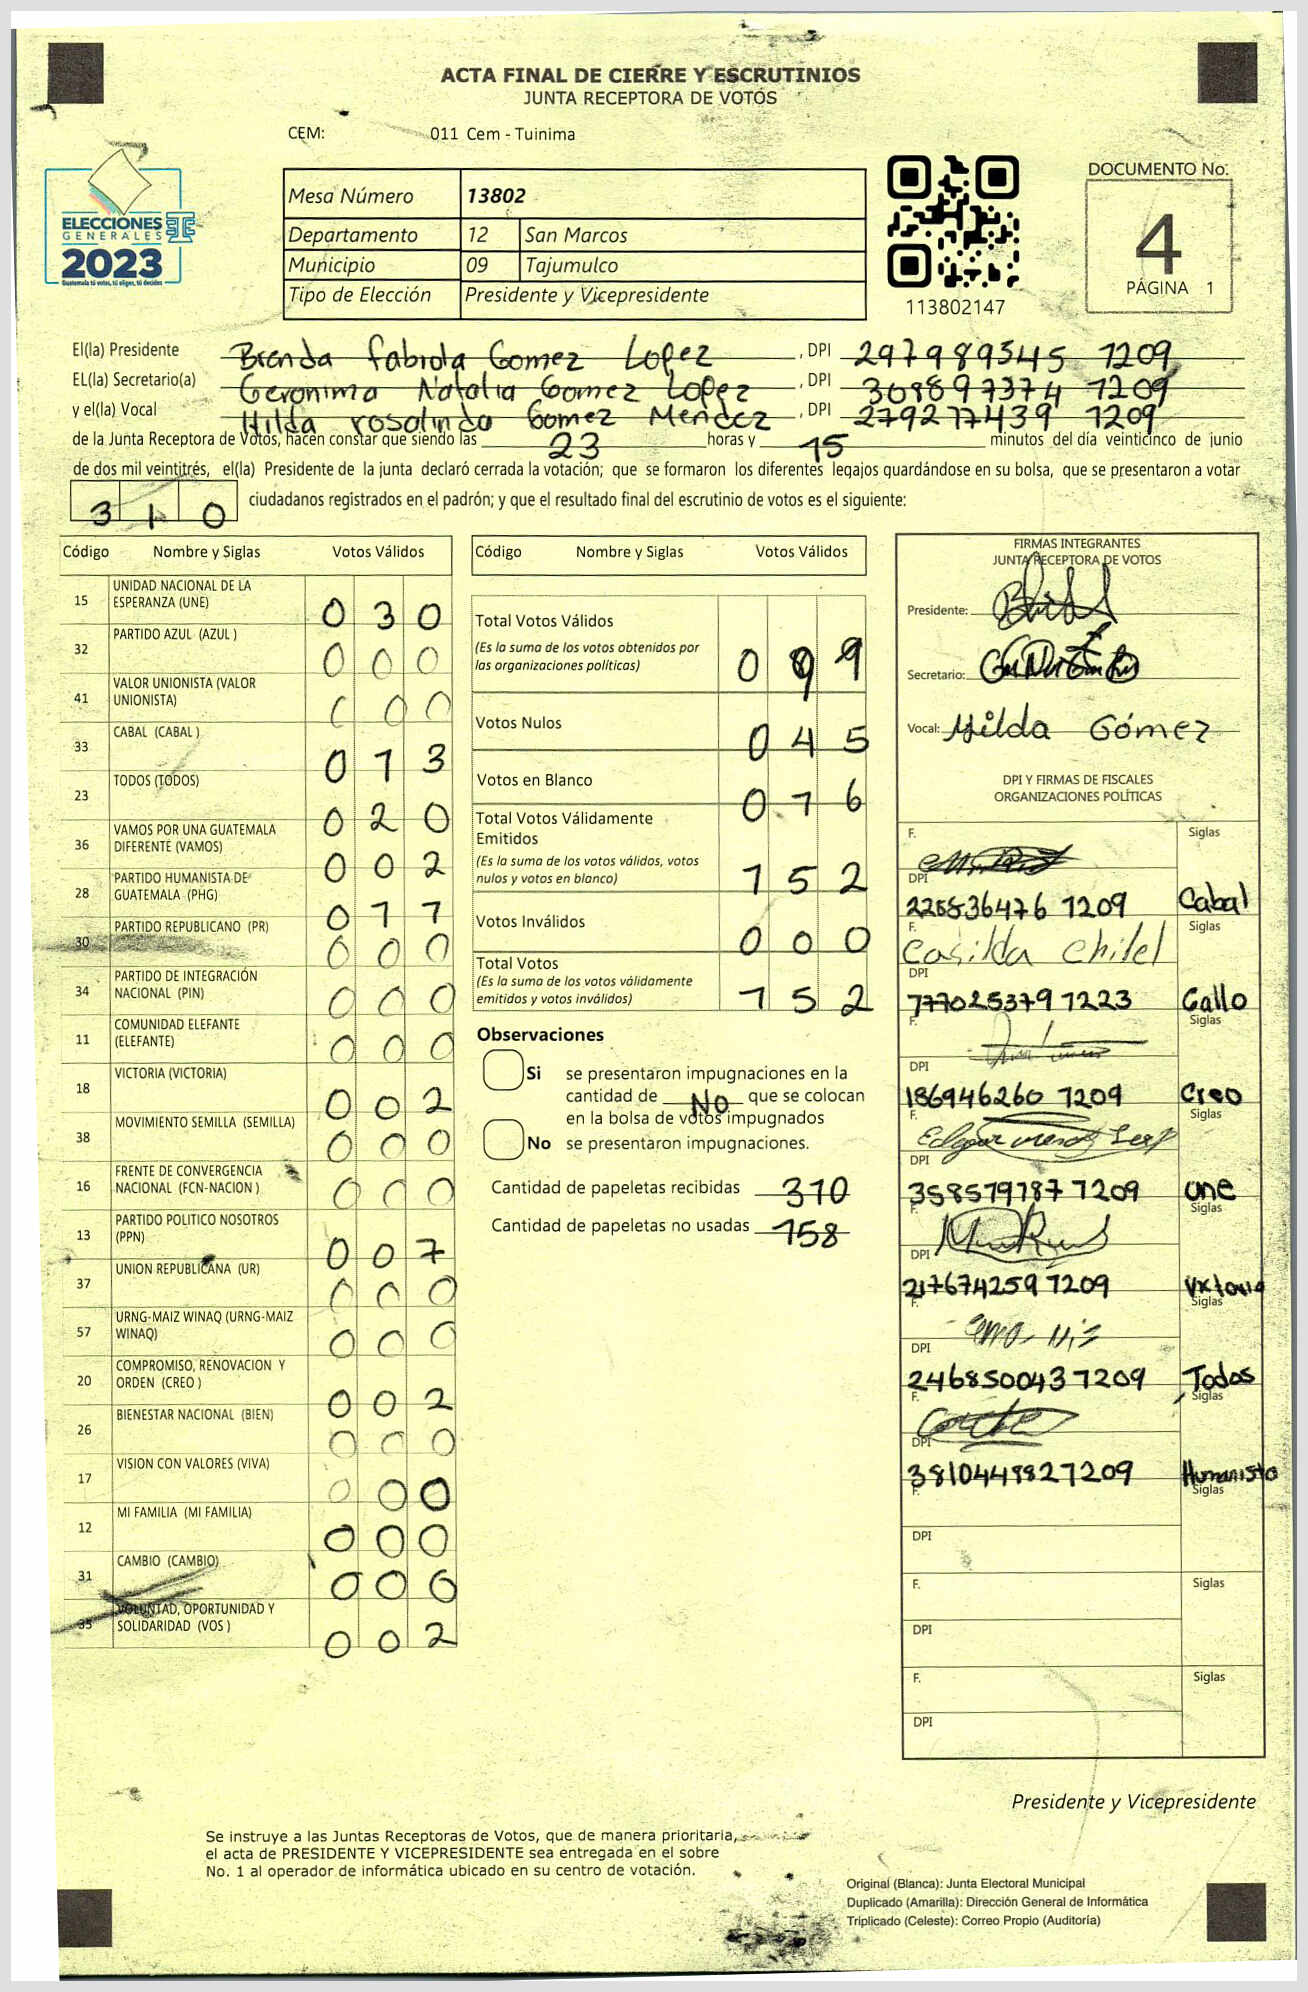 ACTA FINAL DE CIERRE Y ESCRUTINIOS
JUNTA RECEPTORA DE VOTOS
CEM: 011 Cem - Tuinima
ELECCIONES
GENERALES
2023
Guatemala tú votas, tú eliges, tú decides
Mesa Número 13802
Departamento 12 San Marcos
Municipio 09 Tajumulco
Tipo de Elección Presidente y Vicepresidente
113802147
DOCUMENTO No.
4
PÁGINA 1
El(la) Presidente Brenda fabiola Gomez Lopez, DPI 297989545 1209
EL(la) Secretario(a) Geronima Natalia Gomez Lopez, DPI 308897374 1209
y el(la) Vocal Hilda rosalinda Gomez Mendez, DPI 279277439 1209
de la Junta Receptora de Votos, hacen constar que siendo las 23 horas y 15 minutos del día veinticinco de junio
de dos mil veintitrés, el(la) Presidente de la junta declaró cerrada la votación; que se formaron los diferentes legajos guardándose en su bolsa, que se presentaron a votar
310 ciudadanos registrados en el padrón; y que el resultado final del escrutinio de votos es el siguiente:
Código Nombre y Siglas Votos Válidos
15 UNIDAD NACIONAL DE LA
ESPERANZA (UNE) 0 3 0
32 PARTIDO AZUL (AZUL ) 0 0 0
41 VALOR UNIONISTA (VALOR
UNIONISTA) 0 0 0
33 CABAL (CABAL ) 0 1 3
23 TODOS (TODOS) 0 2 0
36 VAMOS POR UNA GUATEMALA
DIFERENTE (VAMOS) 0 0 2
28 PARTIDO HUMANISTA DE
GUATEMALA (PHG) 0 1 1
30 PARTIDO REPUBLICANO (PR) 0 0 0
34 PARTIDO DE INTEGRACIÓN
NACIONAL (PIN) 0 0 0
11 COMUNIDAD ELEFANTE
(ELEFANTE) 0 0 0
18 VICTORIA (VICTORIA) 0 0 2
38 MOVIMIENTO SEMILLA (SEMILLA) 0 0 0
16 FRENTE DE CONVERGENCIA
NACIONAL (FCN-NACION ) 0 0 0
13 PARTIDO POLITICO NOSOTROS
(PPN) 0 0 7
37 UNION REPUBLICANA (UR) 0 0 0
57 URNG-MAIZ WINAQ (URNG-MAIZ
WINAQ) 0 0 0
20 COMPROMISO, RENOVACION Y
ORDEN (CREO ) 0 0 2
26 BIENESTAR NACIONAL (BIEN) 0 0 0
17 VISION CON VALORES (VIVA) 0 0 0
12 MI FAMILIA (MI FAMILIA) 0 0 0
31 CAMBIO (CAMBIO) 0 0 0
35 VOLUNTAD, OPORTUNIDAD Y
SOLIDARIDAD (VOS ) 0 0 2
Código Nombre y Siglas Votos Válidos
Total Votos Válidos
(Es la suma de los votos obtenidos por
las organizaciones políticas) 0 9 1
Votos Nulos 0 4 5
Votos en Blanco 0 1 6
Total Votos Válidamente
Emitidos
(Es la suma de los votos válidos, votos
nulos y votos en blanco) 1 5 2
Votos Inválidos 0 0 0
Total Votos
(Es la suma de los votos válidamente
emitidos y votos inválidos) 1 5 2
Observaciones
Si se presentaron impugnaciones en la
cantidad de No que se colocan
en la bolsa de votos impugnados
No se presentaron impugnaciones.
Cantidad de papeletas recibidas 310
Cantidad de papeletas no usadas 158
FIRMAS INTEGRANTES
JUNTA RECEPTORA DE VOTOS
Presidente:
Secretario:
Vocal: Hilda Gómez
DPI Y FIRMAS DE FISCALES
ORGANIZACIONES POLÍTICAS
F. Siglas
DPI
225836476 1209 Cabal
F. Casilda Chilel Siglas
DPI
777025379 1223 Gallo
F. Siglas
DPI
186946260 1209 Creo
F. Siglas
DPI
358579787 1209 une
F. Siglas
DPI
217674259 1209
F. Siglas
DPI
246850043 1209 Todos
F. Siglas
DPI
381044882 7209 Humanista
F. Siglas
DPI
F. Siglas
DPI
F. Siglas
DPI
Presidente y Vicepresidente
Se instruye a las Juntas Receptoras de Votos, que de manera prioritaria,
el acta de PRESIDENTE Y VICEPRESIDENTE sea entregada en el sobre
No. 1 al operador de informática ubicado en su centro de votación.
Original (Blanca): Junta Electoral Municipal
Duplicado (Amarilla): Dirección General de Informática
Triplicado (Celeste): Correo Propio (Auditoría)